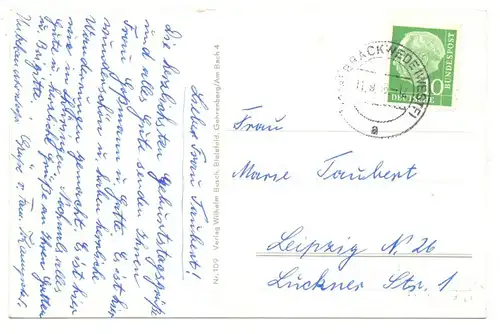 Liebe Frau Taubert!
Die herzlichsten Geburtstagsgrüße
und alles Gute senden Ihnen
Frau Goßmann u. Gatte. Es ist hier
wunderschön u. haben herrliche
Wanderungen gemacht. Es ist hier
wie in Thüringen. Nochmals alles
Gute u. herzliche Grüße an Ihren Gatten
u. Brigitte.
Grüße v. Frau
Nr. 109 Verlag Wilhelm Busch, Bielefeld, Gehrenberg/Am Bach 4
BRACKWEDE (WESTF)
a
10
DEUTSCHE
BUNDESPOST
Frau
Marie Taubert
Leipzig N. 26
Lückner Str. 1